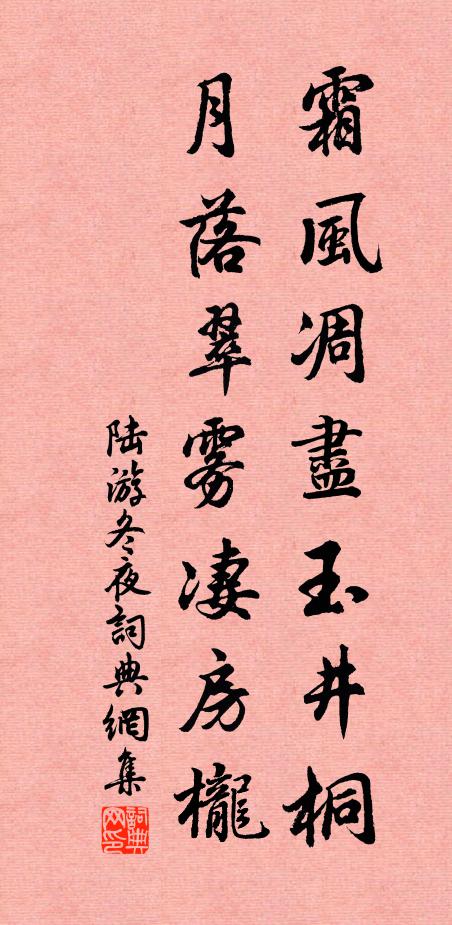 霜風凋盡玉井桐
月落翠霧淒房櫳
陆游冬夜詞典網集
詞典网印